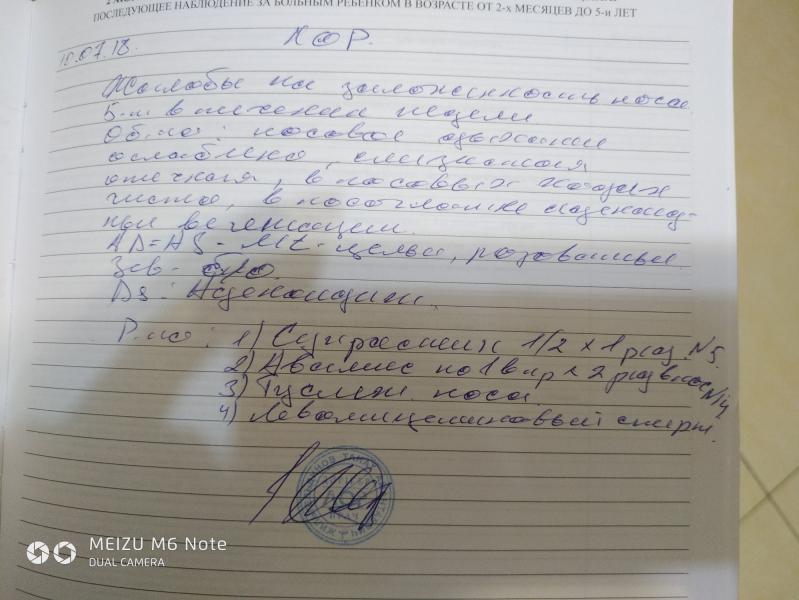 ПОСЛЕДУЮЩЕЕ НАБЛЮДЕНИЕ ЗА БОЛЬНЫМ РЕБЕНКОМ В ВОЗРАСТЕ ОТ 2-х МЕСЯЦЕВ ДО 5-и ЛЕТ
10.07.18. ЛОР.
Жалобы на заложенность носа
Б-н в течении недели
Об-но: носовое дыхание
ослаблено, слизистая
отечная, в носовых ходах
чисто, в носоглотке аденоид-
ные вегетации.
AD=AS - Mt - целы, розоватые.
Зев - б/о.
Ds: Аденоидит.
Р-но: 1) Супрастин 1/2 х 1 раз N5
2) Авамис по 1 впр х 2 раз в нос N14
3) Туалет носа
4) Левомицетиновый спирт.
MEIZU M6 Note
DUAL CAMERA